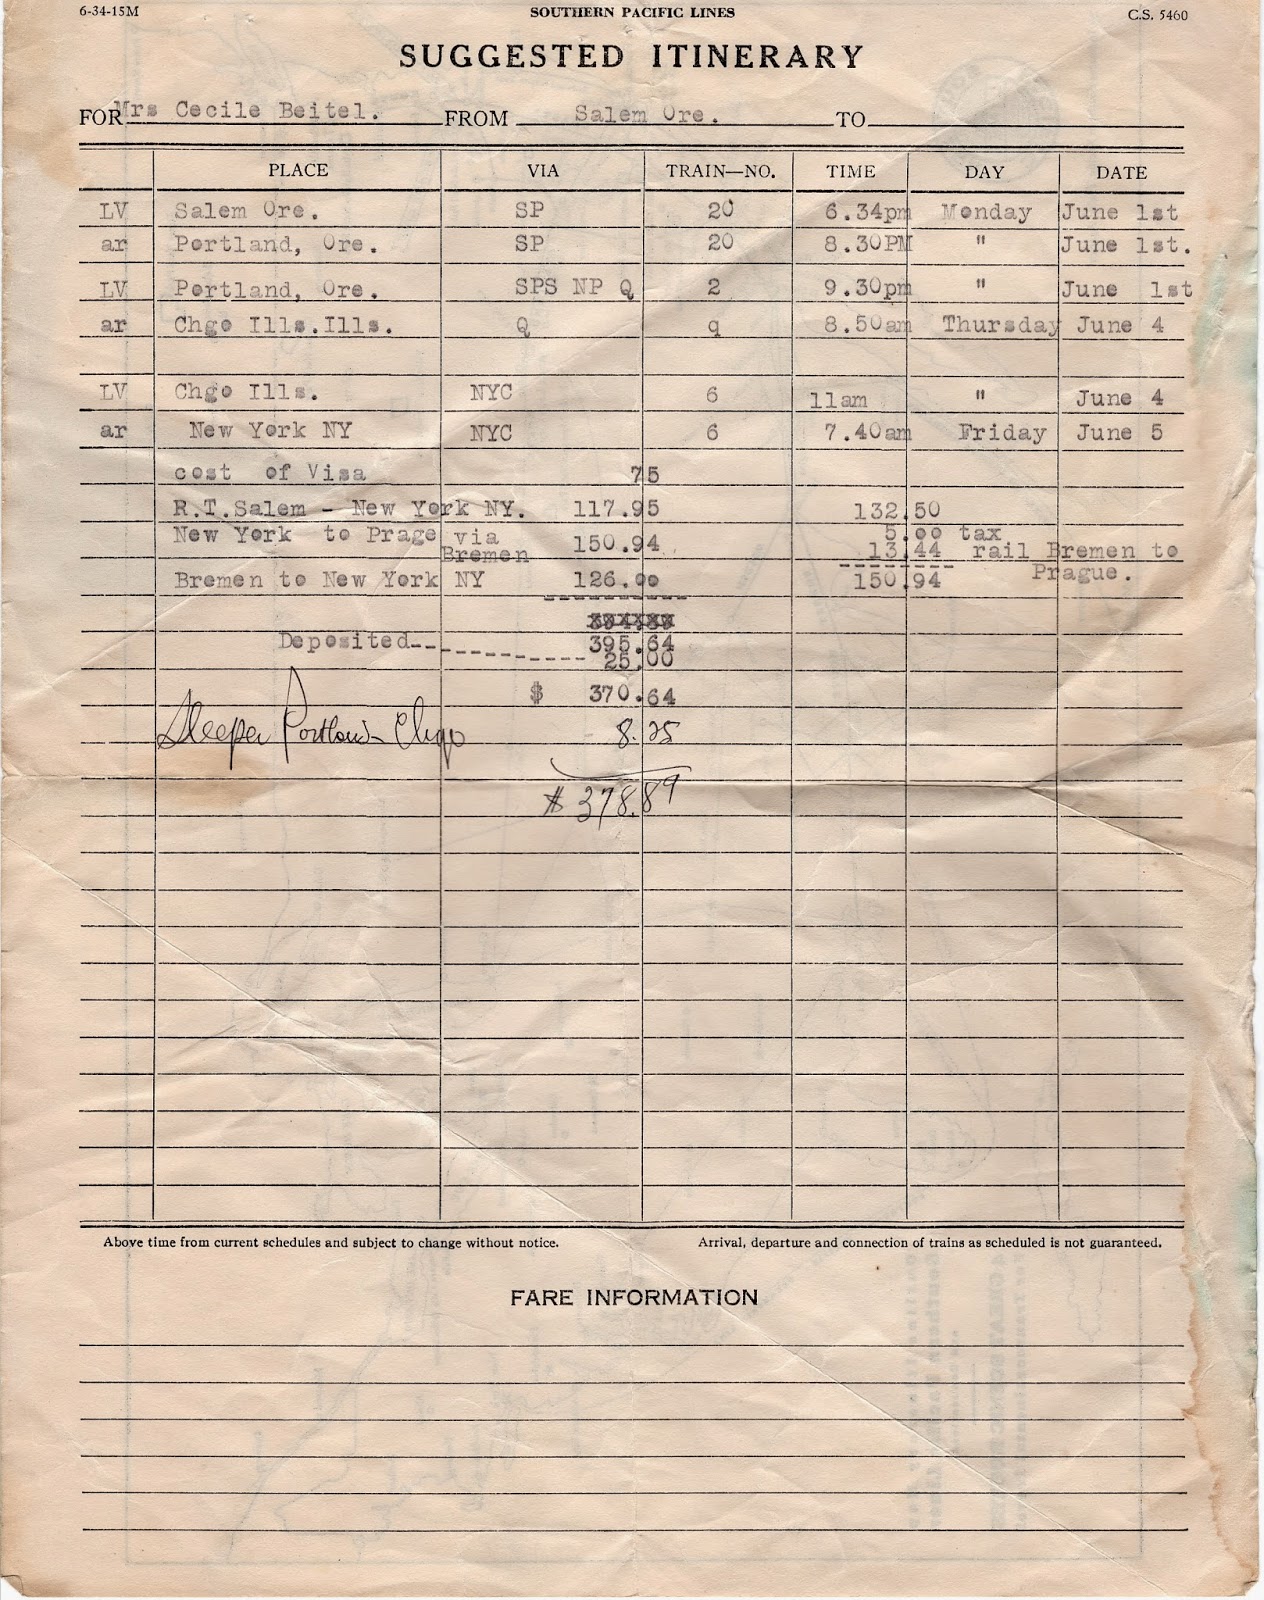 6-34-15M SOUTHERN PACIFIC LINES C.S. 5460
SUGGESTED ITINERARY
FOR Mrs Cecile Beitel. FROM Salem Ore. TO
PLACE VIA TRAIN—NO. TIME DAY DATE
LV Salem Ore. SP 20 6.34pm Monday June 1st
ar Portland, Ore. SP 20 8.30PM " June 1st.
LV Portland, Ore. SPS NP Q 2 9.30pm " June 1st
ar Chgo Ills.Ills. Q q 8.50am Thursday June 4
LV Chgo Ills. NYC 6 11am " June 4
ar New York NY NYC 6 7.40am Friday June 5
cost of Visa 75
R.T.Salem - New York NY. 117.95 132.50
New York to Prage via Bremen 150.94 5.00 tax
13.44 rail Bremen to Prague.
Bremen to New York NY 126.00 150.94
395.64
Deposited-- 25.00
$ 370.64
Sleeper Portland - Chgo 8.25
$ 378.89
Above time from current schedules and subject to change without notice. Arrival, departure and connection of trains as scheduled is not guaranteed.
FARE INFORMATION